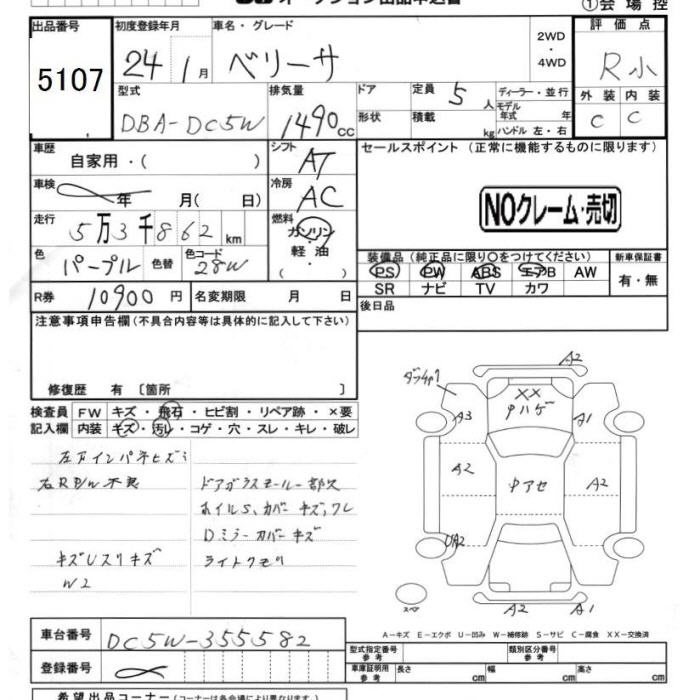 ①会場控
出品番号
5107
初度登録年月
24 1月
車名・グレード
ベリーサ
2WD
・
4WD
評価点
R小
型式
DBA-DC5W
排気量
1490cc
ドア
形状
定員 5人
積載 kg
ディーラー・並行
モデル年式 年
ハンドル 左・右
外装 内装
C C
車歴
自家用・( )
シフト
AT
セールスポイント (正常に機能するものに限ります)
車検
年 月( 日)
冷房
AC
NOクレーム・売切
走行
5万3千862km
燃料
ガソリン
軽油
・( )
色
パープル
色替
色コード
28W
装備品 (純正品に限り○をつけてください)
PS PW ABS エアB AW
SR ナビ TV カワ
新車保証書
有・無
R券 10900円
名変期限 月 日
後日品
注意事項申告欄(不具合内容等は具体的に記入して下さい)
修復歴 有〔箇所 〕
検査員 FW キズ・飛石・ヒビ割・リペア跡・×要
記入欄 内装 キズ・汚れ・コゲ・穴・スレ・キレ・破レ
左右インパネヒズミ
右RP/W不良
ドアガラスモール一部欠
ホイルS,カバーキズ,ワレ
Dミラーカバーキズ
キズUスリキズ
ライトクモリ
W2
A2
XX
ウハゲ
A3
A1
A2
ウアセ
A2
UA2
A2
A1
スペア
A−キズ E−エクボ U−凹み W−補修跡 S−サビ C−腐食 XX−交換済
車台番号 DC5W-355582
登録番号
型式指定番号
参考
類別区分番号
参考
車庫証明用
参考
長さ cm 幅 cm 高さ cm
希望出品コーナー(コーナーは各会場により異なります)